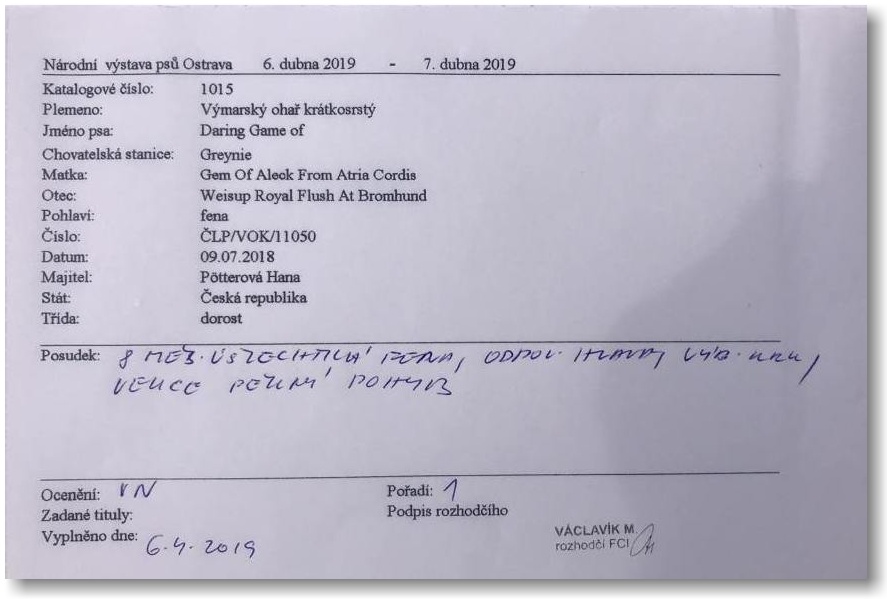 Národní výstava psů Ostrava 6. dubna 2019 - 7. dubna 2019
Katalogové číslo: 1015
Plemeno: Výmarský ohař krátkosrstý
Jméno psa: Daring Game of
Chovatelská stanice: Greynie
Matka: Gem Of Aleck From Atria Cordis
Otec: Weisup Royal Flush At Bromhund
Pohlaví: fena
Číslo: ČLP/VOK/11050
Datum: 09.07.2018
Majitel: Pötterová Hana
Stát: Česká republika
Třída: dorost
Posudek: 8 MĚS. UŠLECHTILÁ FENA, ODPOV. HLAVA, VÝB. KRK,
VELICE PĚKNÝ POHYB
Ocenění: VN Pořadí: 1
Zadané tituly: Podpis rozhodčího
Vyplněno dne: 6.4.2019
VÁCLAVÍK M.
rozhodčí FCI